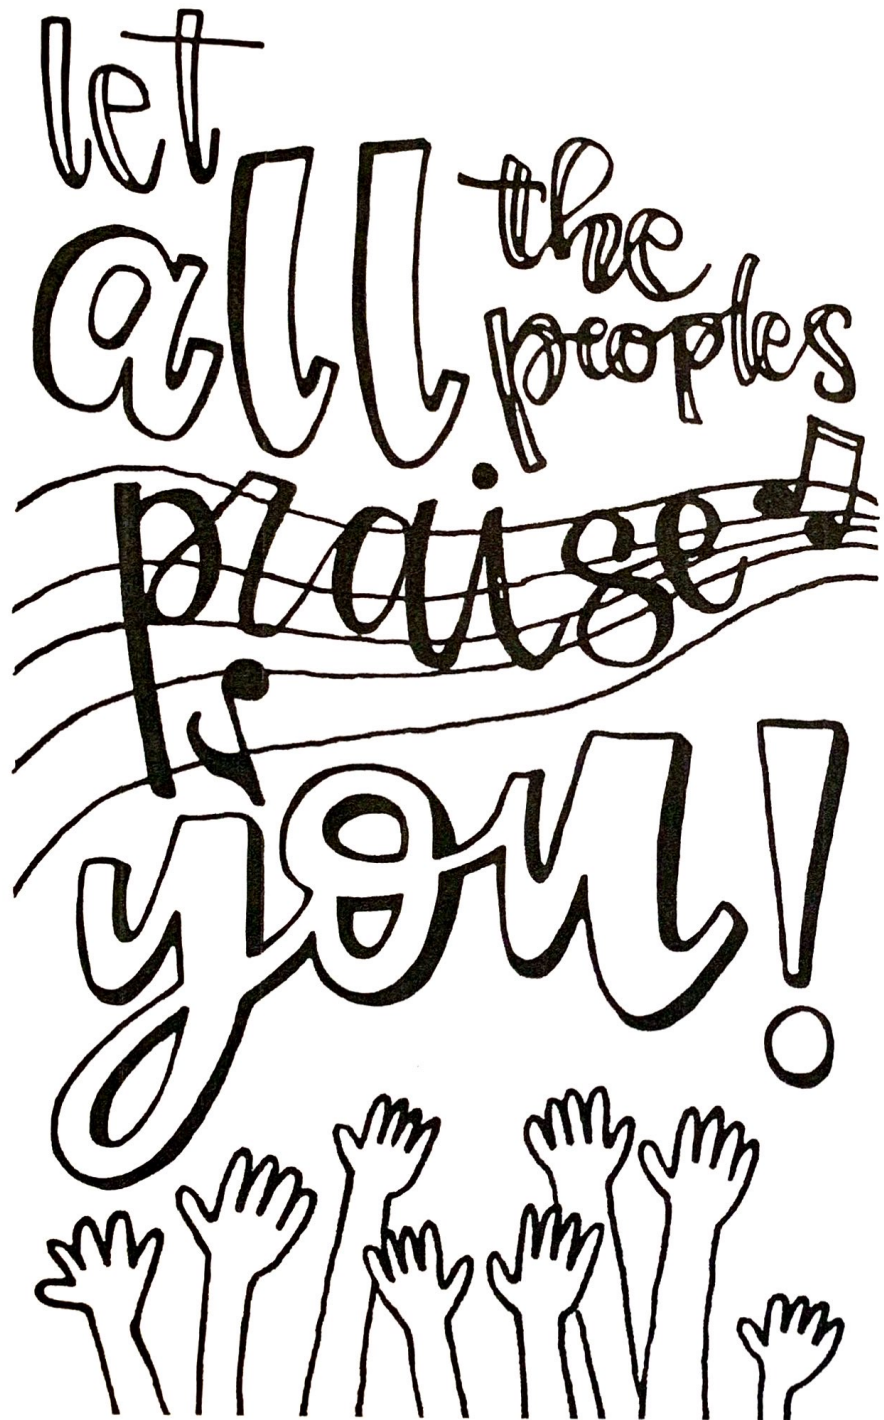 let
all the
peoples
praise
you!